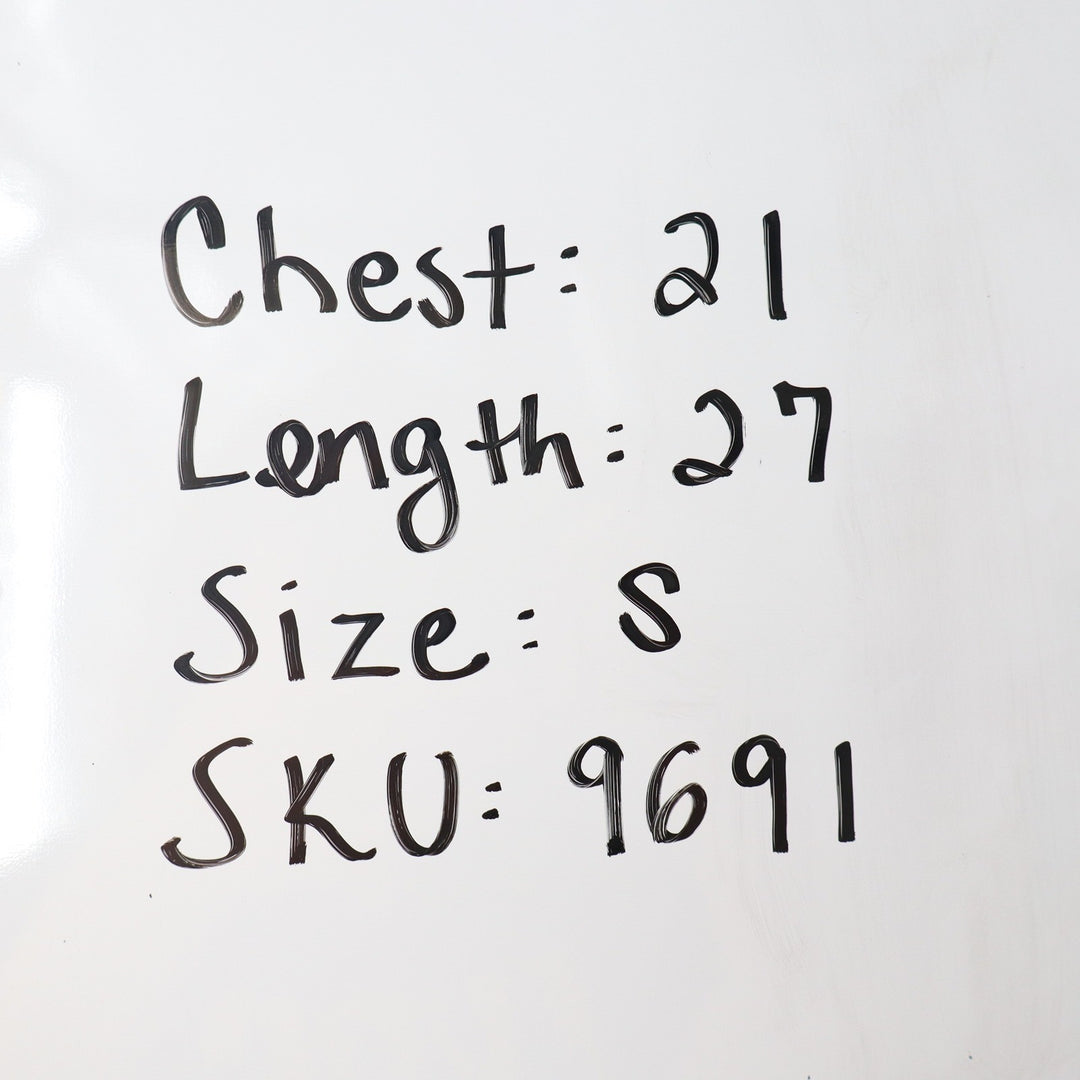 Chest: 21
Length: 27
Size: S
SKU: 9691